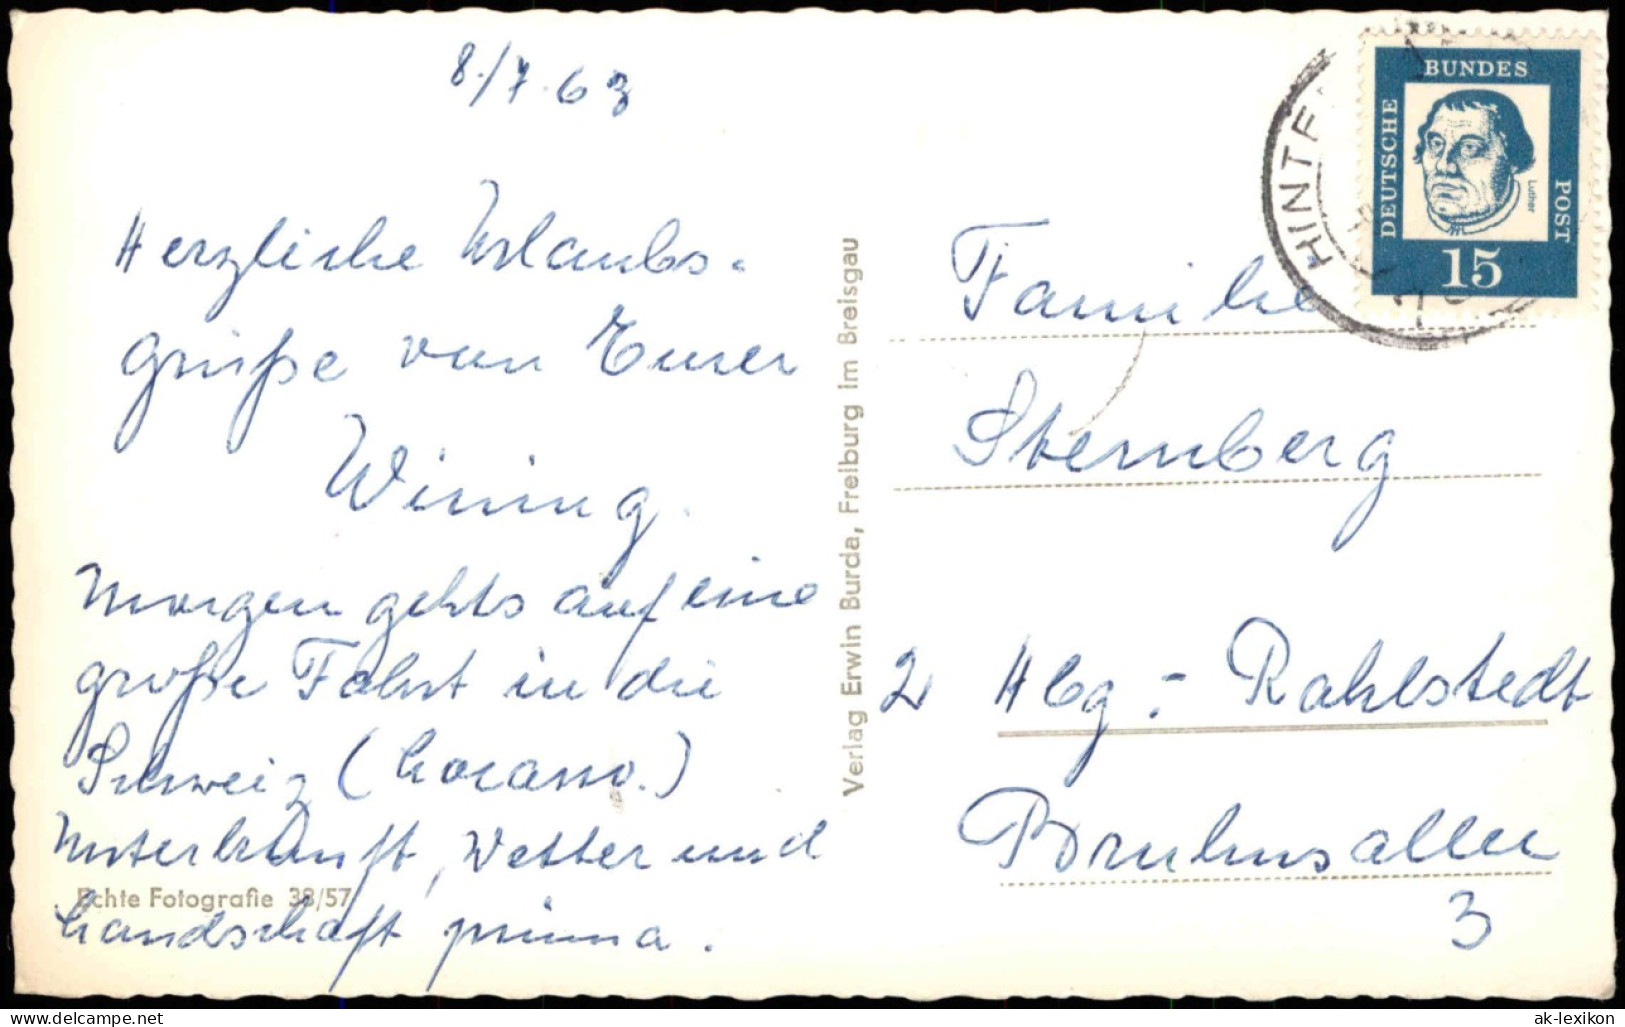 8./7.63
Herzliche Urlaubs-
grüße von Eurer
Wining.
Morgen gehts auf eine
große Fahrt in die
Schweiz (Locarno.)
Unterkunft, Wetter und
Landschaft prima.
Echte Fotografie 38/57
Verlag Erwin Burda, Freiburg im Breisgau
HINTE
BUNDES
DEUTSCHE
POST
Luther
15
Familie
Sternberg
2 Hbg.- Rahlstedt
Bruhnsallee
3
ak-lexikon
www.delcampe.net